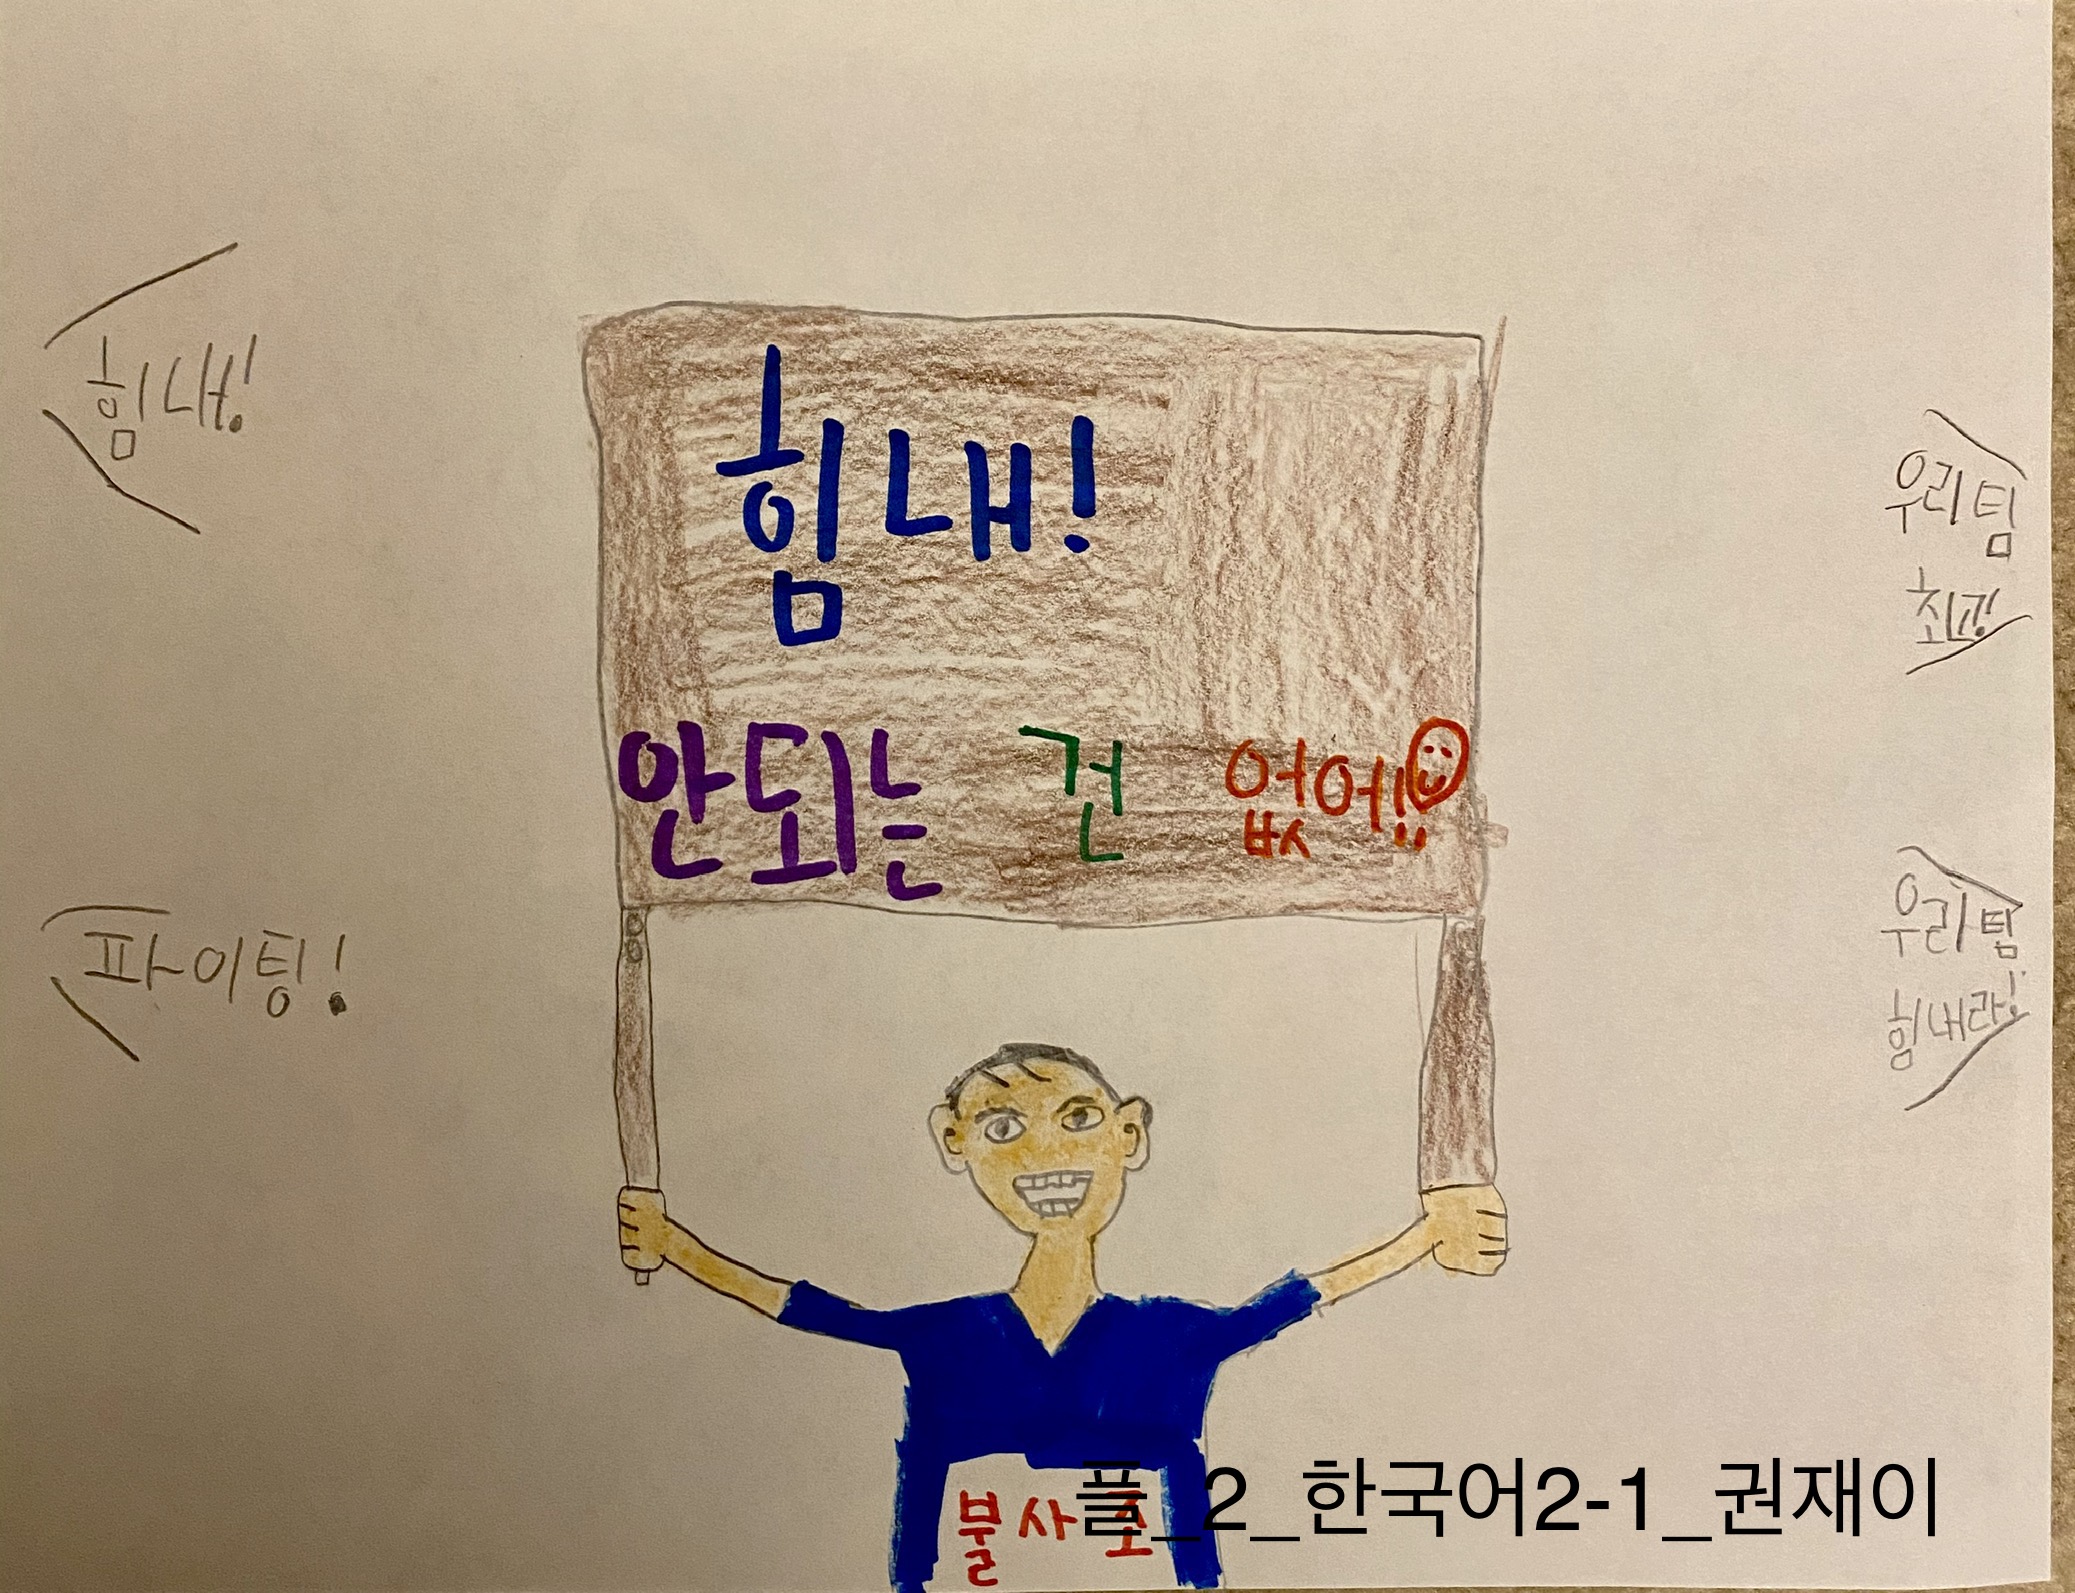 힘내!
힘내!
우리팀
최고!
안되는 건 없어!!
파이팅!
우리팀
힘내라!
불사조
플_2_한국어2-1_권재이